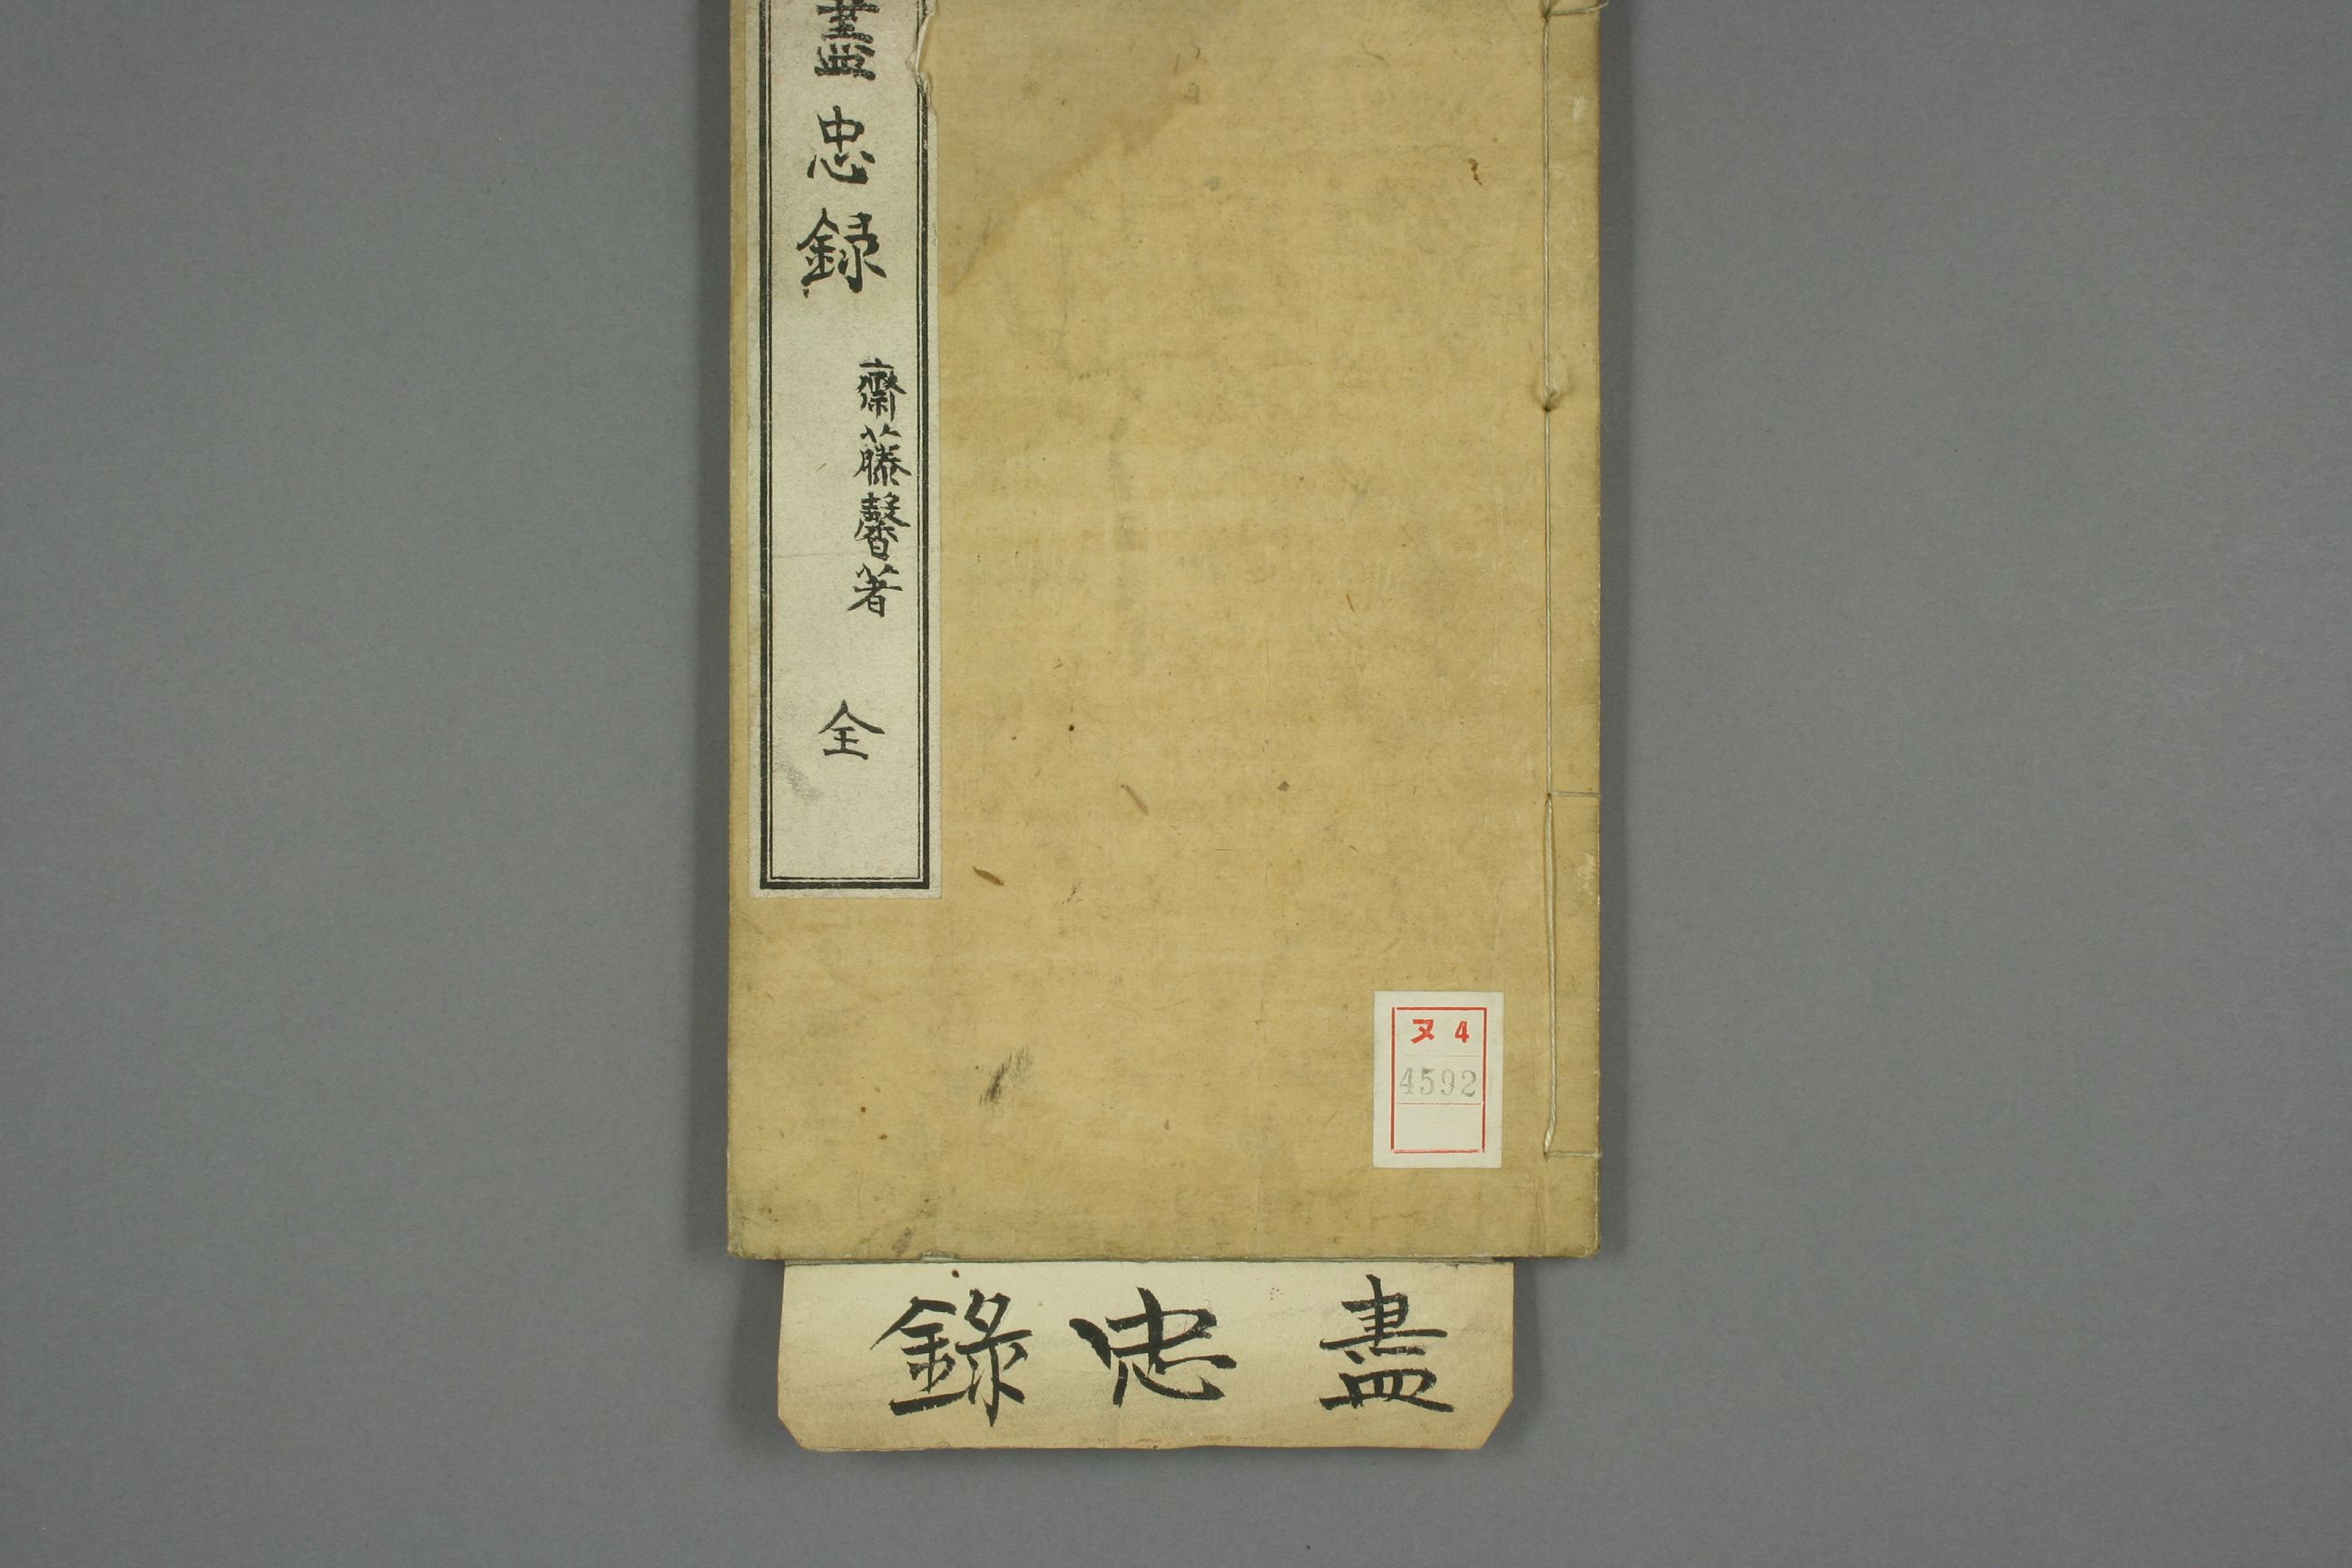 盡忠録
齋藤馨著
全
ヌ 4
4592
盡忠錄